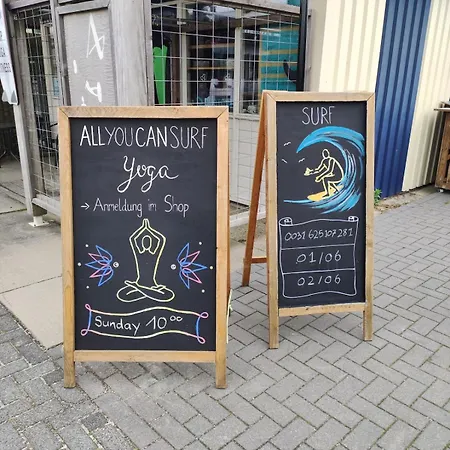 ALLYOUCANSURF
Yoga
→ Anmeldung im Shop
Sunday 10⁰⁰
SURF
0031 625107281
01/06
02/06